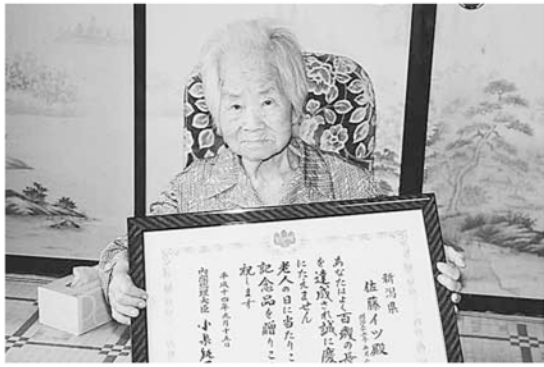 新潟県
佐藤イツ殿
あなたはよく百歳の長
を達成され誠に慶
にたえません
老人の日に当たりこ
記念品を贈りこ
祝します
平成十四年九月十五日
内閣総理大臣 小泉純